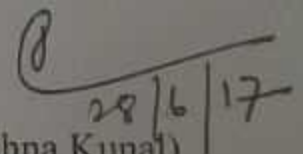 28/6/17
hna Kunal)